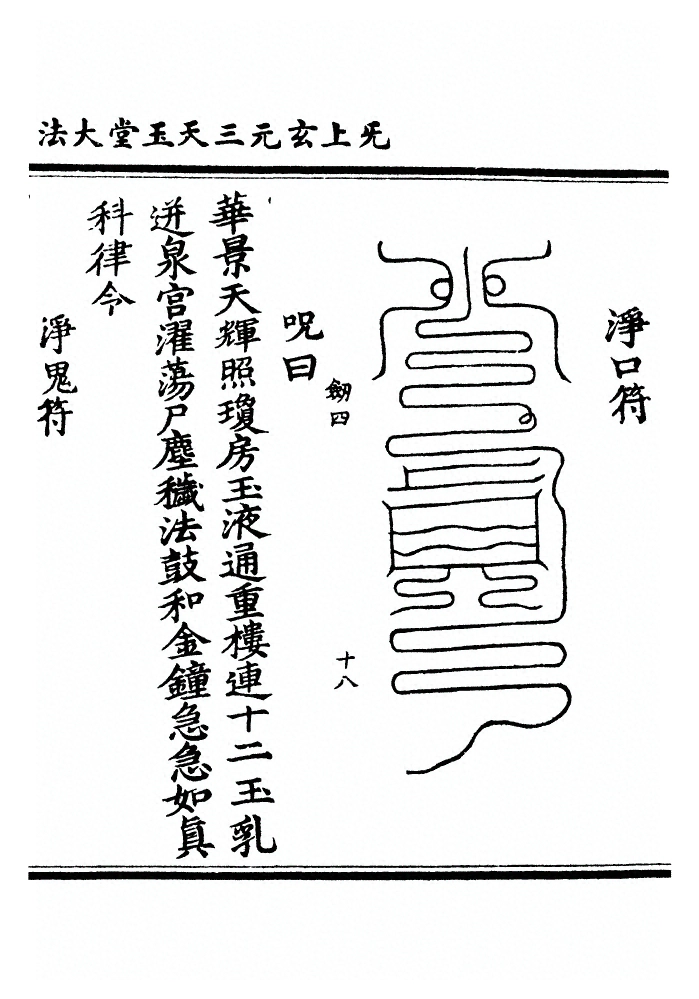 无上玄元三天玉堂大法
淨口符
劒四
十八
呪曰
華景天輝照瓊房玉液通重樓連十二玉乳
迸泉宮濯蕩尸塵穢法鼓和金鐘急急如眞
科律令
淨鬼符